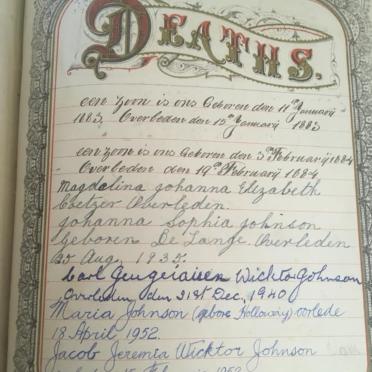 DEATHS.
een zoon is ons Geboren den 11de Januarij
1883, Overleden den 15de Januarij 1883
een zoon is ons Geboren den 3de Februarij 1884
Overleden den 19de Februarij 1884
Magdelina Johanna Elizabeth
Coetzer Overleden.
Johanna Sophia Johnson
Geboren De Lange Overleden
25 Aug. 1935.
Carl Wicktor Johnson
Overleden den 31st Dec, 1940
Maria Johnson (gebore Holloway) oorlede
18 April 1952.
Jacob Jeremia Wicktor Johnson